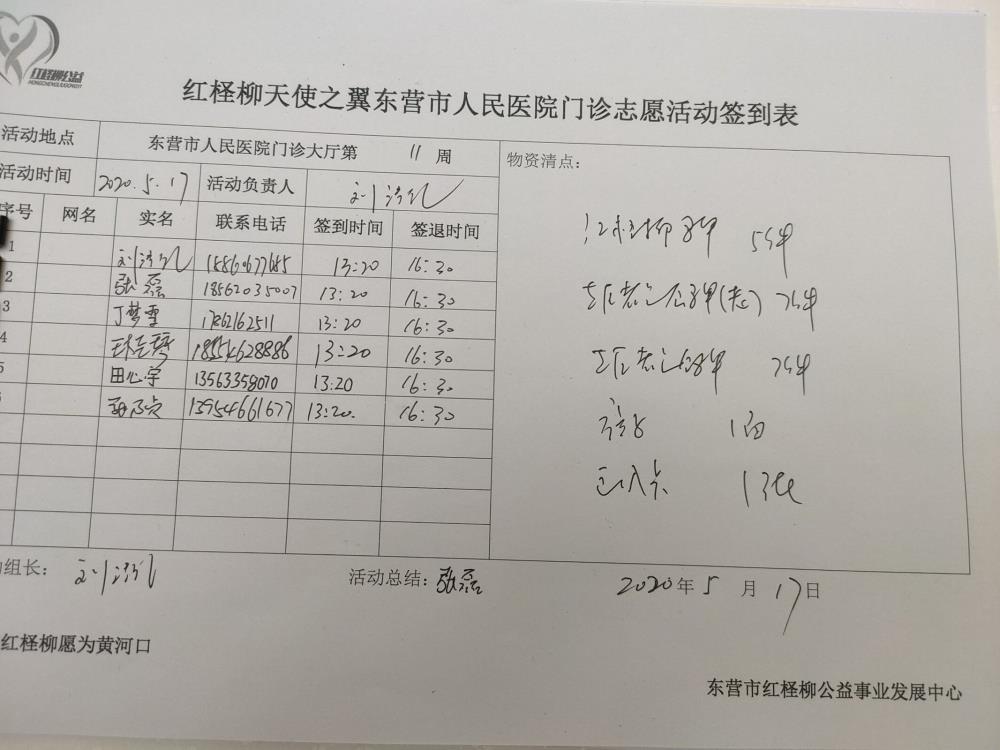 红柽柳公益
HONGCHENGLIUGONGYI
红柽柳天使之翼东营市人民医院门诊志愿活动签到表
活动地点 东营市人民医院门诊大厅第 11 周 物资清点：
活动时间 2020.5.17 活动负责人
序号 网名 实名 联系电话 签到时间 签退时间
1 13:20 16:30
2 张磊 18562035007 13:20 16:30
3 丁梦雪 17862162511 13:20 16:30
4 18554628886 13:20 16:30
5 田心宇 13563358070 13:20 16:30
13954661677 13:20. 16:30
红柽柳马甲 5件
旗子 1面
出入卡 13张
组长： 活动总结：张磊 2020年5月17日
红柽柳愿为黄河口
东营市红柽柳公益事业发展中心